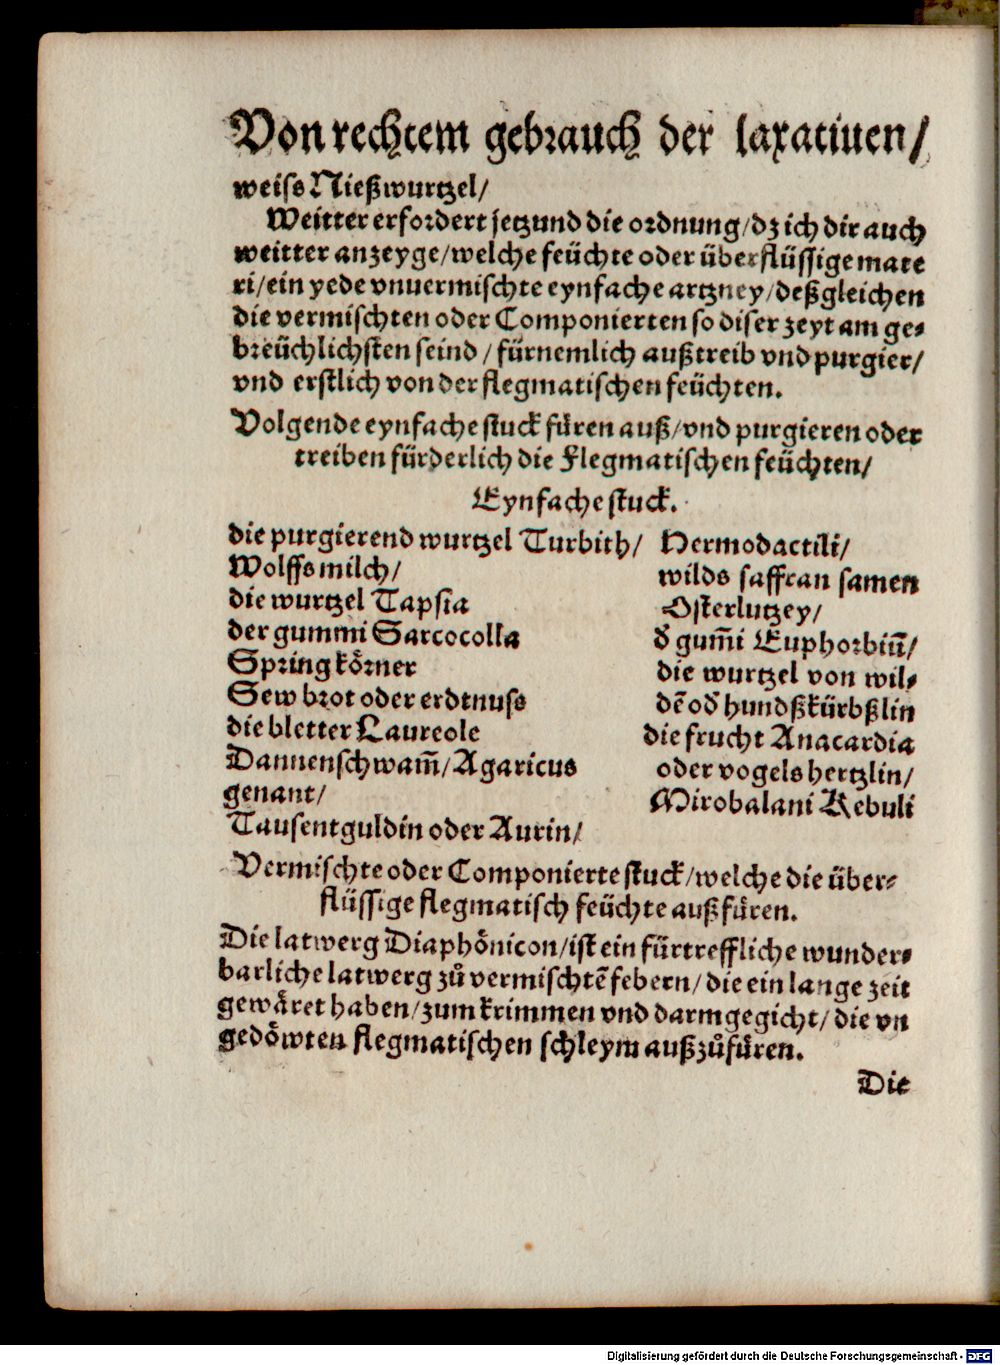 Von rechtem gebrauch der laxatiuen/
weiss Nießwurtzel/
Weitter erfordert jetzund die ordnung/dz ich dir auch
weitter anzeyge/welche feüchte oder überflüssige mate
ri/ein yede vnuermischte eynfache artzney/deßgleichen
die vermischten oder Componierten so diser zeyt am ge-
breüchlichsten seind/fürnemlich außtreib vnd purgier/
vnd erstlich von der flegmatischen feüchten.
Volgende eynfache stuck fuͤren auß/vnd purgieren oder
treiben fürderlich die Flegmatischen feüchten/
Eynfache stuck.
die purgierend wurtzel Turbith/
Wolffsmilch/
die wurtzel Tapsia
der gummi Sarcocolla
Spring koͤrner
Sew brot oder erdtnuss
die bletter Laureole
Dannenschwam̃/Agaricus
genant/
Tausentguldin oder Aurin/
Hermodactili/
wilds saffran samen
Osterlutzey/
d̕ gum̃i Euphorbiũ/
die wurtzel von wil-
dẽ od̕ hundßkürbßlin
die frucht Anacardia
oder vogels hertzlin/
Mirobalani Kebuli
Vermischte oder Componierte stuck/welche die über-
flüssige flegmatisch feüchte auß fuͤren.
Die latwerg Diaphoͤnicon/ist ein fürtreffliche wunder-
barliche latwerg zuͦ vermischtẽ febern/die ein lange zeit
gewaͤret haben/zum krimmen vnd darmgegicht/die vn
gedoͤwten flegmatischen schleym außzuͦfuͤren.
Die
Digitalisierung gefördert durch die Deutsche Forschungsgemeinschaft - DFG